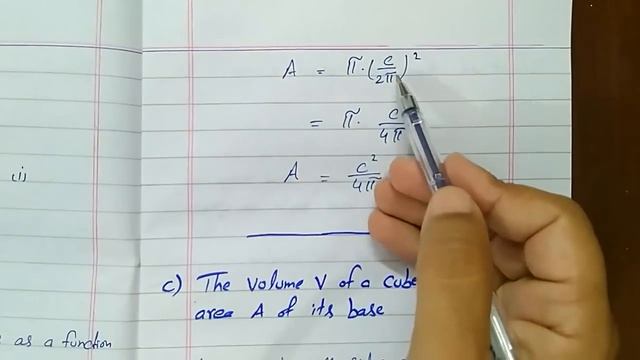 A = π·(c/2π)²
= π· c/4π
A = c²/4π
c) The volume V of a cube
area A of its base
as a function